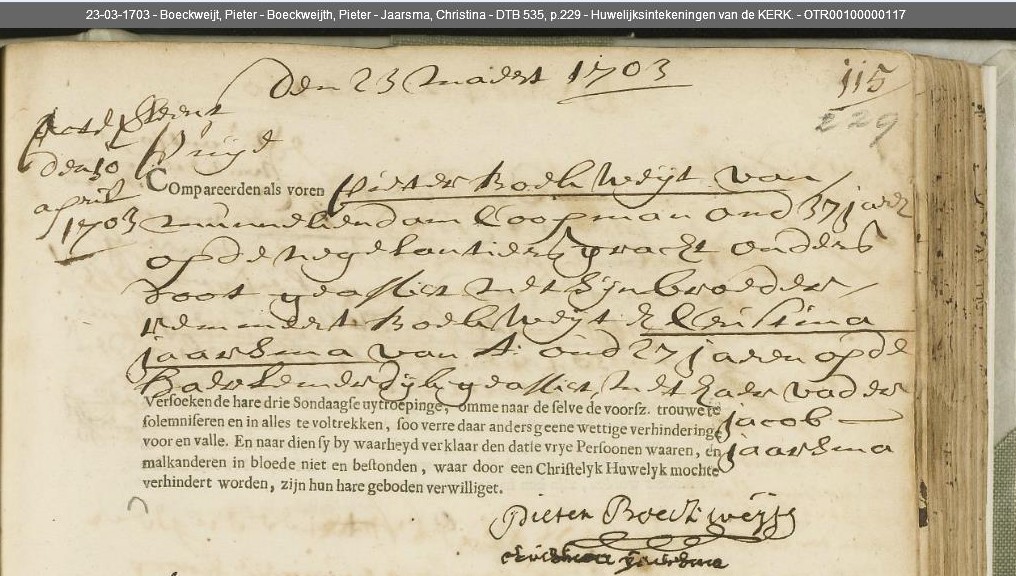 23-03-1703 - Boeckweijt, Pieter - Boeckweijth, Pieter - Jaarsma, Christina - DTB 535, p.229 - Huwelijksintekeningen van de KERK. - OTR00100000117
Den 23 maert 1703
115
229
den 10
april
1703
Compareerden als voren Pieter Boekweijt van
munnekendam Coopman oud 37 jaer
op de negelantiersgracht ouders
doot geassist met sijn broeder
remmert Boekweijt & Cristina
jaarsma van A: oud 27 jaren op de
haerlemerdijk geassist met haer vader
jacob
jaarsma
Versoeken de hare drie Sondaagse uytroepinge, omme naar de selve de voorsz. trouwe te
solemniseren en in alles te voltrekken, soo verre daar anders geene wettige verhinderinge
voor en valle. En naar dien sy by waarheyd verklaar den datse vrye Persoonen waaren, en
malkanderen in bloede niet en bestonden, waar door een Christelyk Huwelyk mochte
verhindert worden, zijn hun hare geboden verwilliget.
Pieter Boeckweijt
christina Jaarsma